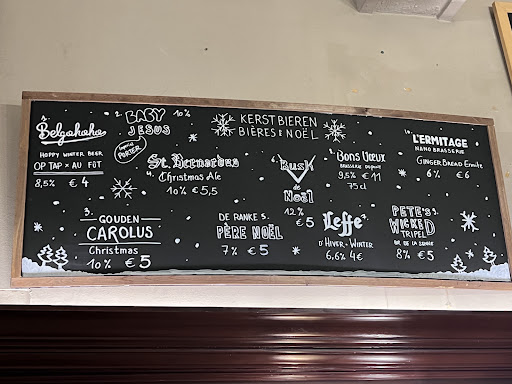 KERSTBIEREN
BIÈRES & NOËL
Belgohoho
HOPPY WINTER BEER
OP TAP × AU FÛT
8,5% € 4
2. BABY 10%
JESUS
PORTER
3.
GOUDEN
CAROLUS
Christmas
10% € 5
St. Bernardus
4. Christmas Ale
10% € 5,5
DE RANKE 5.
PÈRE NOËL
7% € 5
6.
Bush
de
Noël
12%
€ 5
Leffe 7.
D'HIVER - WINTER
6,6% 4€
8.
Bons Vœux
BRASSERIE DUPONT
9,5% € 11
75 cl
PETE'S 9.
WICKED
TRIPEL
BR DE LA SENNE
8% € 5
10.
L'ERMITAGE
NANO BRASSERIE
GINGERBREAD Ermite
6% € 6